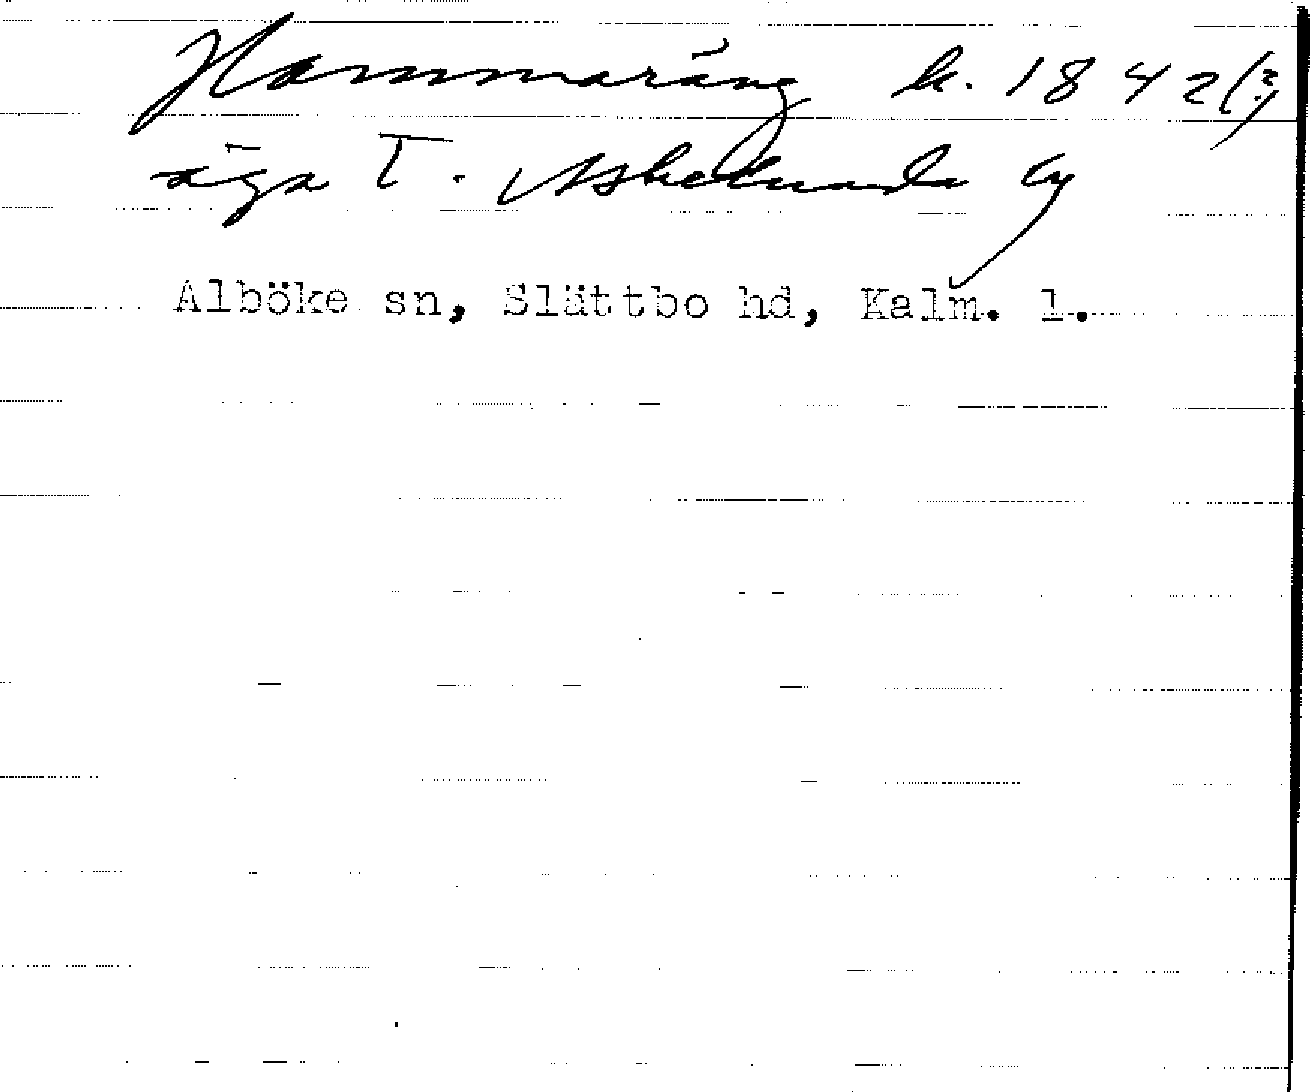 Hammaräng k. 1842(?)
äga T. Askelunda by
Alböke sn, Slättbo hd, Kalm. l.